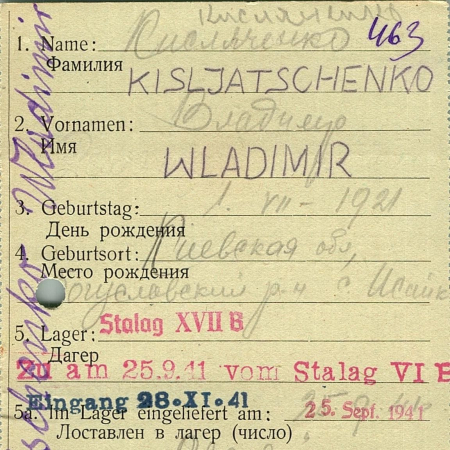 Кисляченко
1. Name: Кисляченко 463
Фамилия
KISLJATSCHENKO
2. Vornamen: Владимир
Имя
WLADIMIR
3. Geburtstag: 1. VII - 1921
День рождения
4. Geburtsort: Киевская обл,
Место рождения
Богуславский р-н с. Исайк
5. Lager: Stalag XVII B
Дагер
Zu am 25.9.41 vom Stalag VI B
Eingang 28·XI.41
5a. Im Lager eingeliefert am: 25. Sept. 1941
Доставлен в лагер (число)
schenko Wladimir